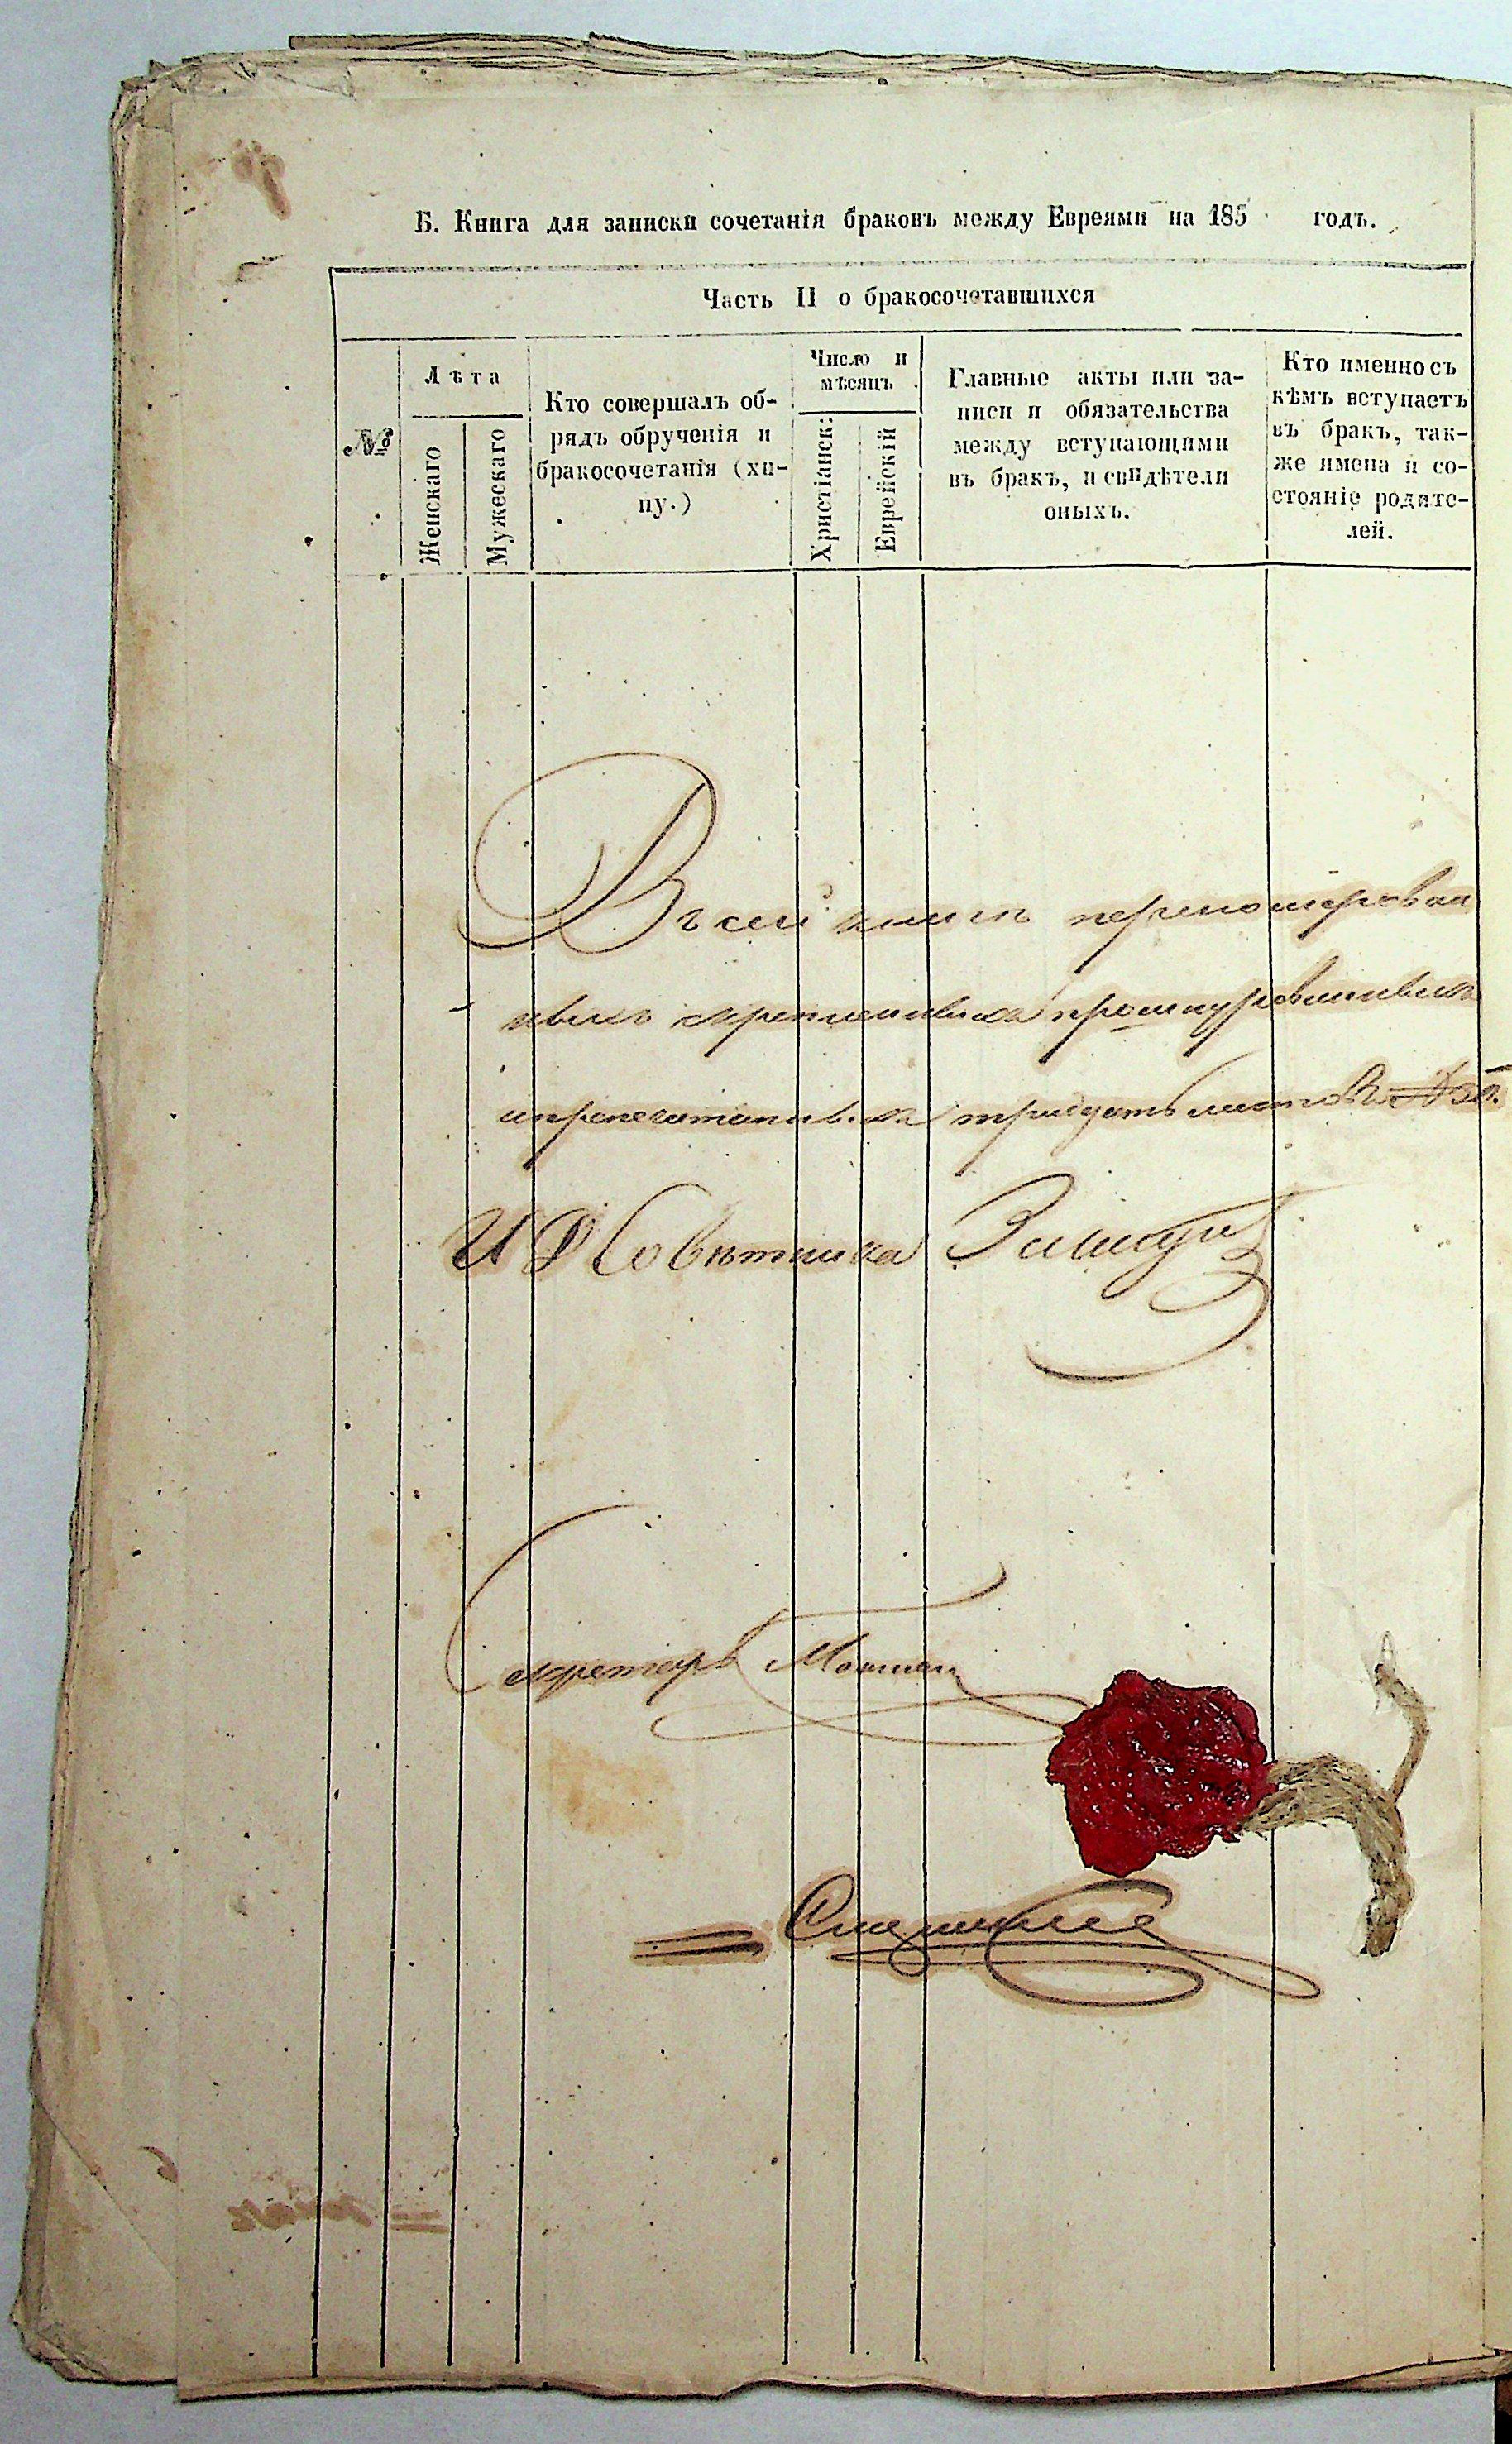 Б. Книга для записки сочетанія браковъ между Евреями на 185 годъ.
Часть II о бракосочетавшихся
№
Лѣта
Женскаго
Мужескаго
Кто совершалъ об-
рядъ обрученія и
бракосочетанія (хи-
пу.)
Число и
мѣсяцъ
Христіанск:
Еврейскій
Главные акты или за-
писи и обязательства
между вступающими
въ бракъ, и свидѣтели
оныхъ.
Кто именно съ
кѣмъ вступаетъ
въ бракъ, так-
же имена и со-
стояніе родите-
лей.
Въ сей книгѣ перенумерован
ныхъ скрепленныхъ прошнурованныхъ
и припечатанныхъ тридцать листовъ
И Д Совѣтника
Секретарь